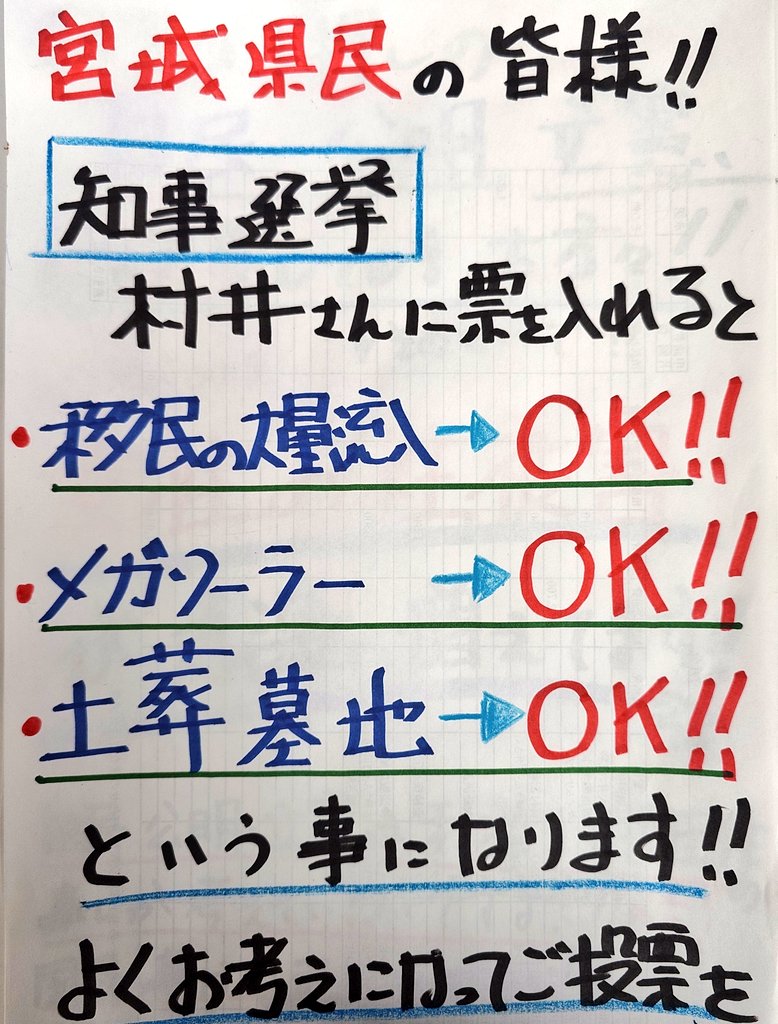 宮城県民の皆様!!
知事選挙
村井さんに票を入れると
・移民の大量流入→OK!!
・メガソーラー→OK!!
・土葬墓地→OK!!
という事になります!!
よくお考えになってご投票を